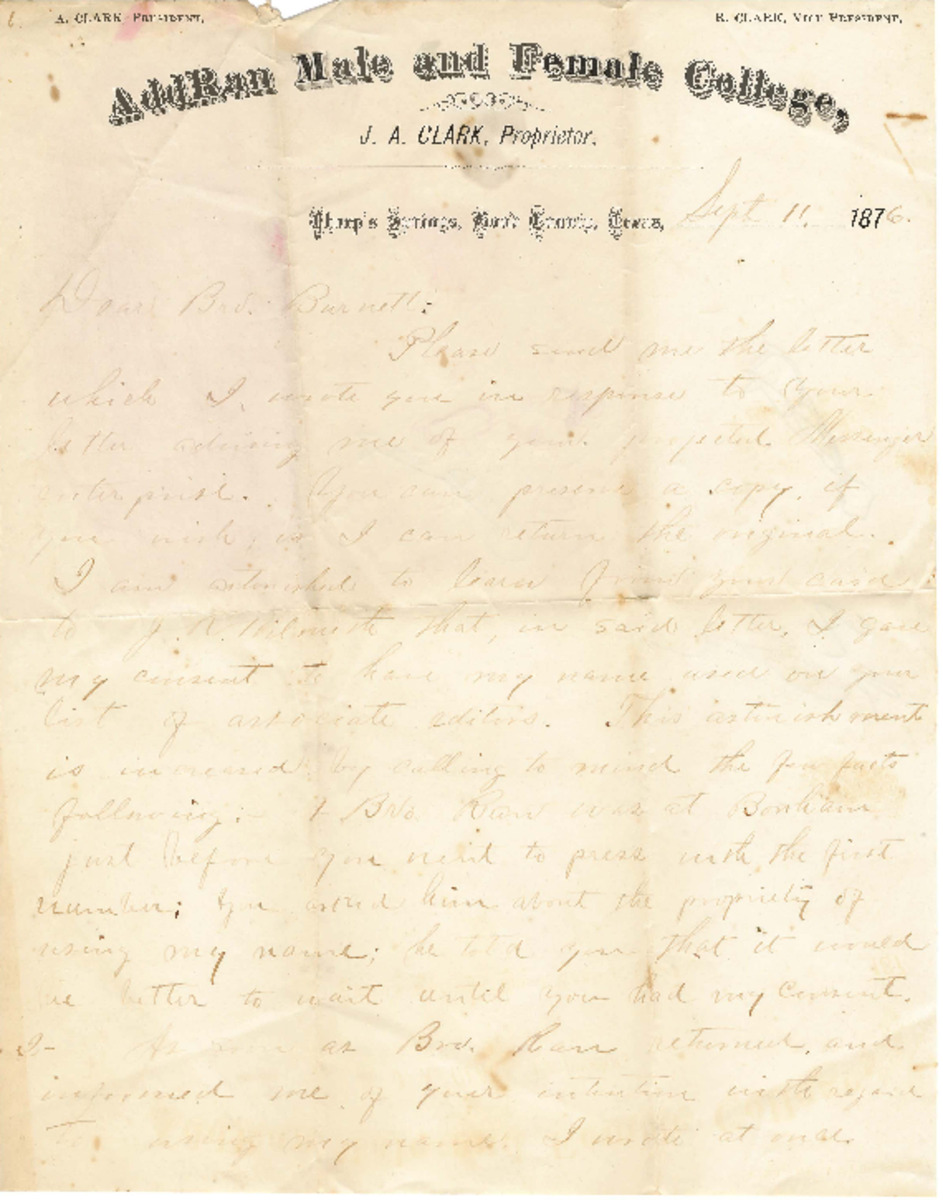 A. CLARK, PRESIDENT.
R. CLARK, VICE PRESIDENT.
AddRan Male and Female College,
J. A. CLARK, Proprietor.
Thorp's Springs, Hood County, Texas, Sept 11 1876.
Dear Bro. Burnett:
Please send me the letter
which I wrote you in response to your
letter advising me of your projected Messenger
enterprise. You can preserve a copy, if
you wish, or I can return the original.
I am astonished to learn from your card
to J. R. Wilmeth that, in said letter, I gave
my consent to have my name used on your
list of associate editors. This astonishment
is increased by calling to mind the few facts
following:- 1 Bro. Ran was at Bonham
just before you went to press with the first
number; you asked him about the propriety of
using my name; he told you that it would
be better to wait until you had my consent.
2- As soon as Bro. Ran returned, and
informed me of your intention with regard
to using my name, I wrote at once